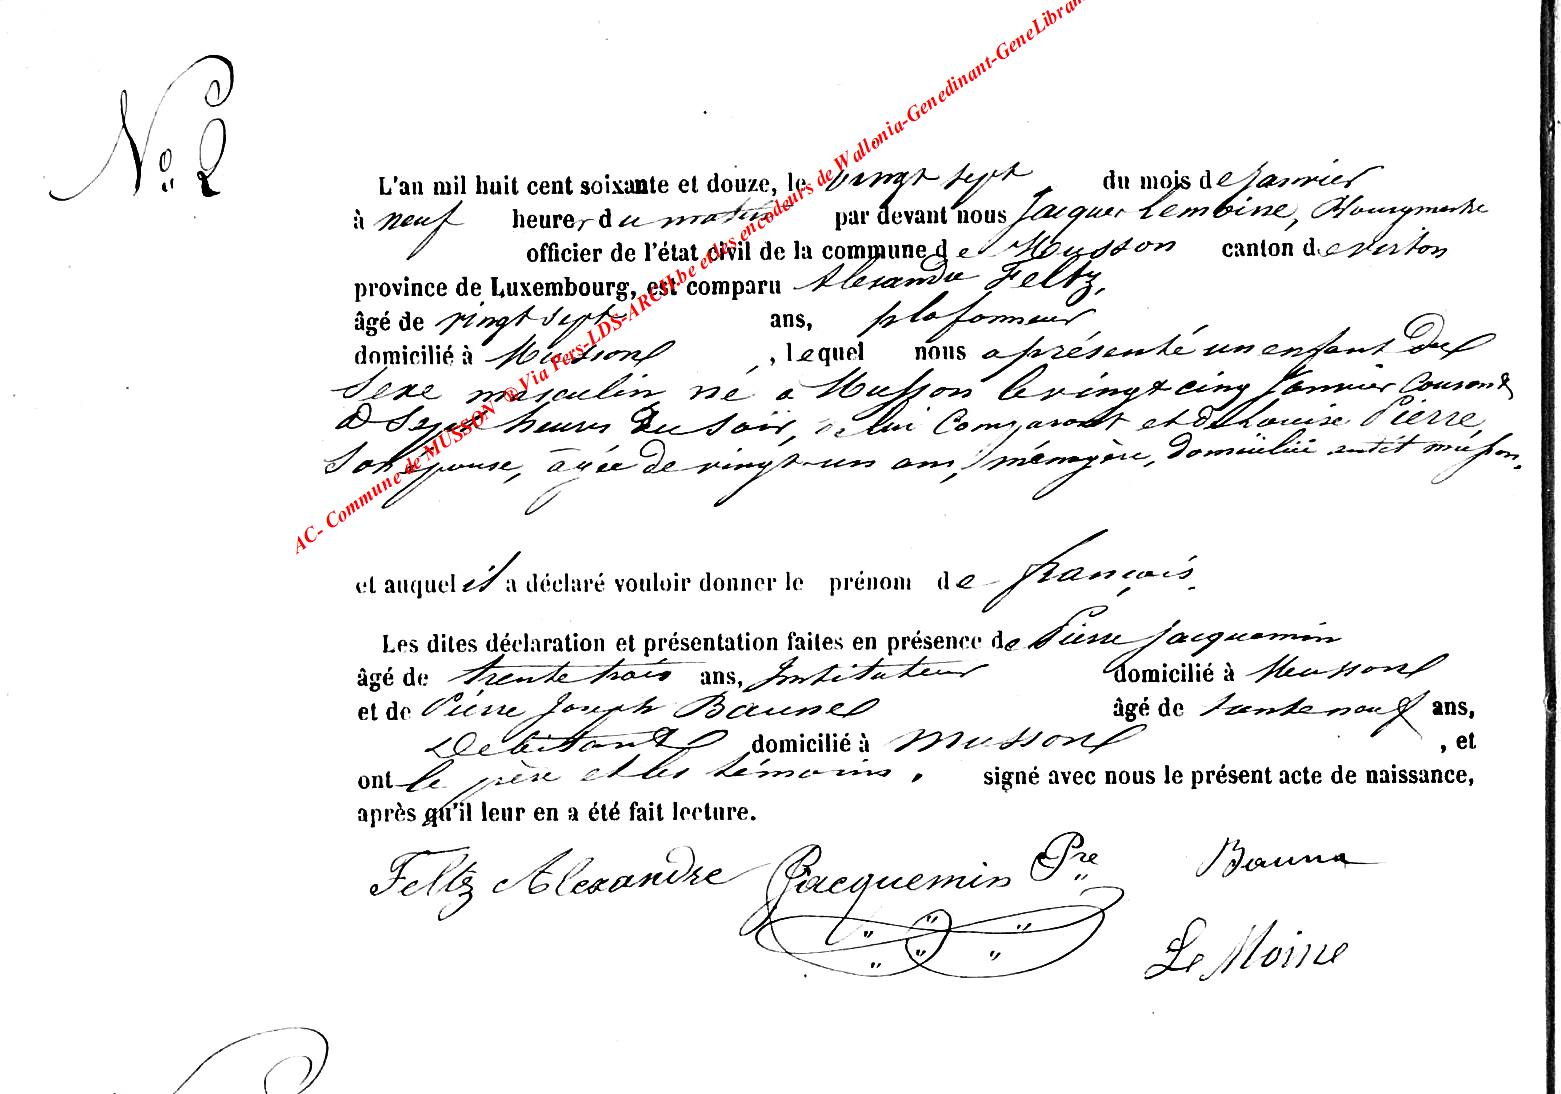 N° 2
L'an mil huit cent soixante et douze, le vingt sept du mois de Janvier
à neuf heures du matin par devant nous Jacques Lemoine, Bourgmestre
officier de l'état civil de la commune de Musson canton de Virton
province de Luxembourg, est comparu Alexandre Feltz,
âgé de vingt sept ans, plafonneur
domicilié à Musson, lequel nous a présenté un enfant du
sexe masculin né à Musson le vingt cinq Janvier courant
à sept heures du soir, de lui Comparant et de Louise Pierre,
son épouse, âgée de vingt-un ans, ménagère, domiciliée audit Musson.
et auquel il a déclaré vouloir donner le prénom de françois.
Les dites déclaration et présentation faites en présence de Pierre Jacquemin
âgé de trente trois ans, Instituteur domicilié à Musson
et de Pierre Joseph Baune âgé de ans,
Debitant domicilié à Musson, et
ont le père et les témoins. signé avec nous le présent acte de naissance,
après qu'il leur en a été fait lecture.
Feltz Alexandre Jacquemin Pre Bauna
Le Moine
AC- Commune de MUSSON ® Via Pers-LDS-ARCH.be et les encodeurs de Wallonia-Genedinant-GeneLibran